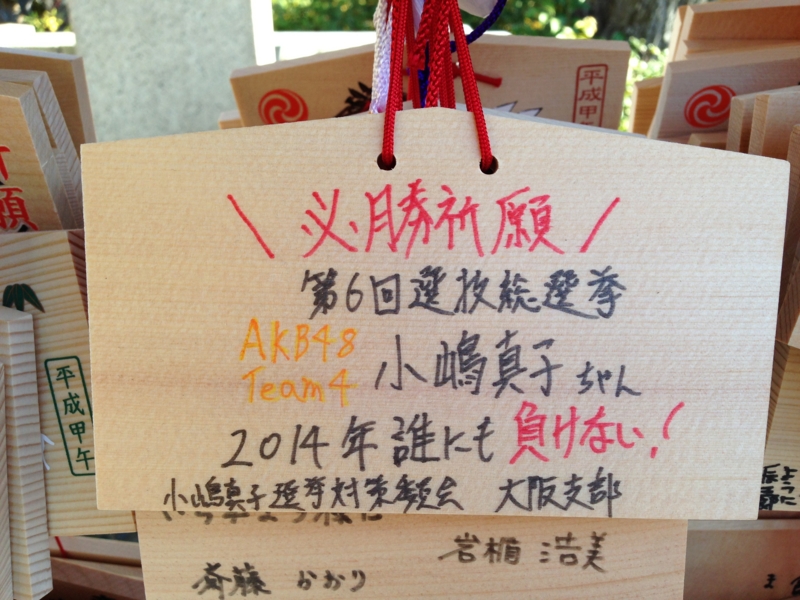 平成甲午
願
平成甲午
\ 必勝祈願 /
第6回選抜総選挙
AKB48
Team4
小嶋真子ちゃん
2014年誰にも負けない!
小嶋真子選挙対策委員会 大阪支部
岩楯 浩美
斉藤 かおり
ように